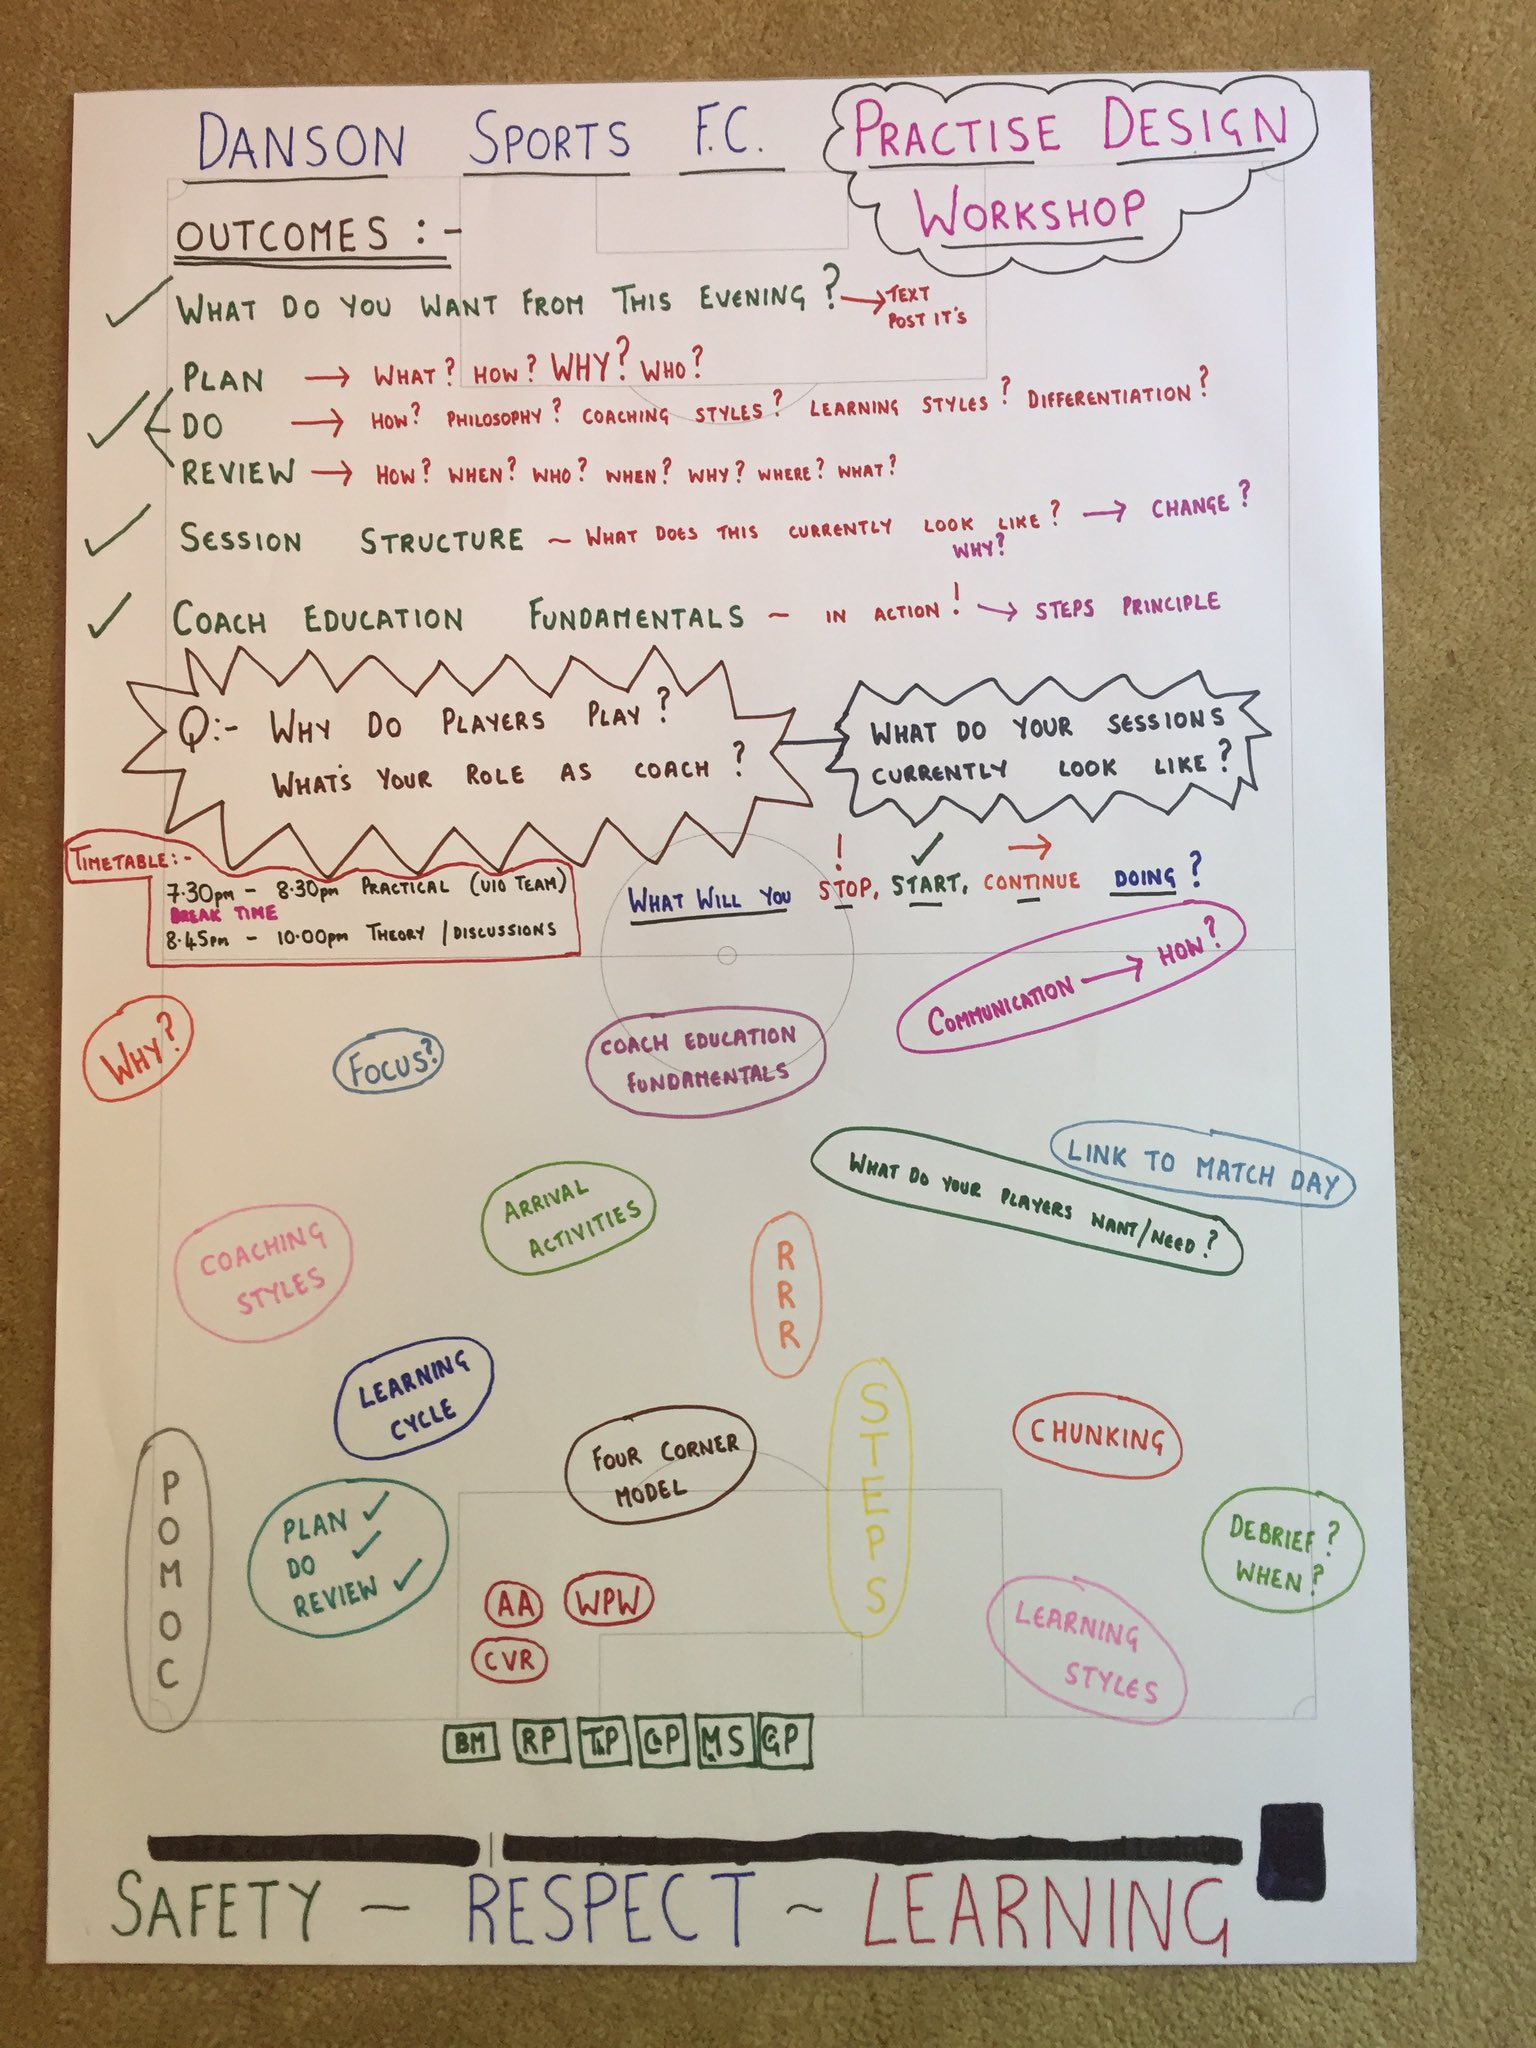 DANSON SPORTS F.C.
PRACTISE DESIGN
WORKSHOP
OUTCOMES :-
WHAT DO YOU WANT FROM THIS EVENING? → TEXT
POST IT'S
PLAN → WHAT? HOW? WHY? WHO?
DO → HOW? PHILOSOPHY? COACHING STYLES? LEARNING STYLES? DIFFERENTIATION?
REVIEW → HOW? WHEN? WHO? WHEN? WHY? WHERE? WHAT?
SESSION STRUCTURE ~ WHAT DOES THIS CURRENTLY LOOK LIKE? → CHANGE?
WHY?
COACH EDUCATION FUNDAMENTALS ~ IN ACTION! → STEPS PRINCIPLE
Q:- WHY DO PLAYERS PLAY?
WHAT'S YOUR ROLE AS COACH?
WHAT DO YOUR SESSIONS
CURRENTLY LOOK LIKE?
TIMETABLE:-
7.30pm - 8.30pm PRACTICAL (U10 TEAM)
BREAK TIME
8.45pm - 10.00pm THEORY / DISCUSSIONS
! ✓ →
WHAT WILL YOU STOP, START, CONTINUE DOING?
COMMUNICATION → HOW?
WHY?
FOCUS?
COACH EDUCATION
FUNDAMENTALS
LINK TO MATCH DAY
WHAT DO YOUR PLAYERS WANT/NEED?
ARRIVAL
ACTIVITIES
COACHING
STYLES
R
R
R
LEARNING
CYCLE
FOUR CORNER
MODEL
S
T
E
P
S
CHUNKING
P
O
M
O
C
PLAN ✓
DO ✓
REVIEW ✓
DEBRIEF?
WHEN?
AA WPW
CVR
LEARNING
STYLES
BM RP TP CP MS GP
SAFETY ~ RESPECT ~ LEARNING